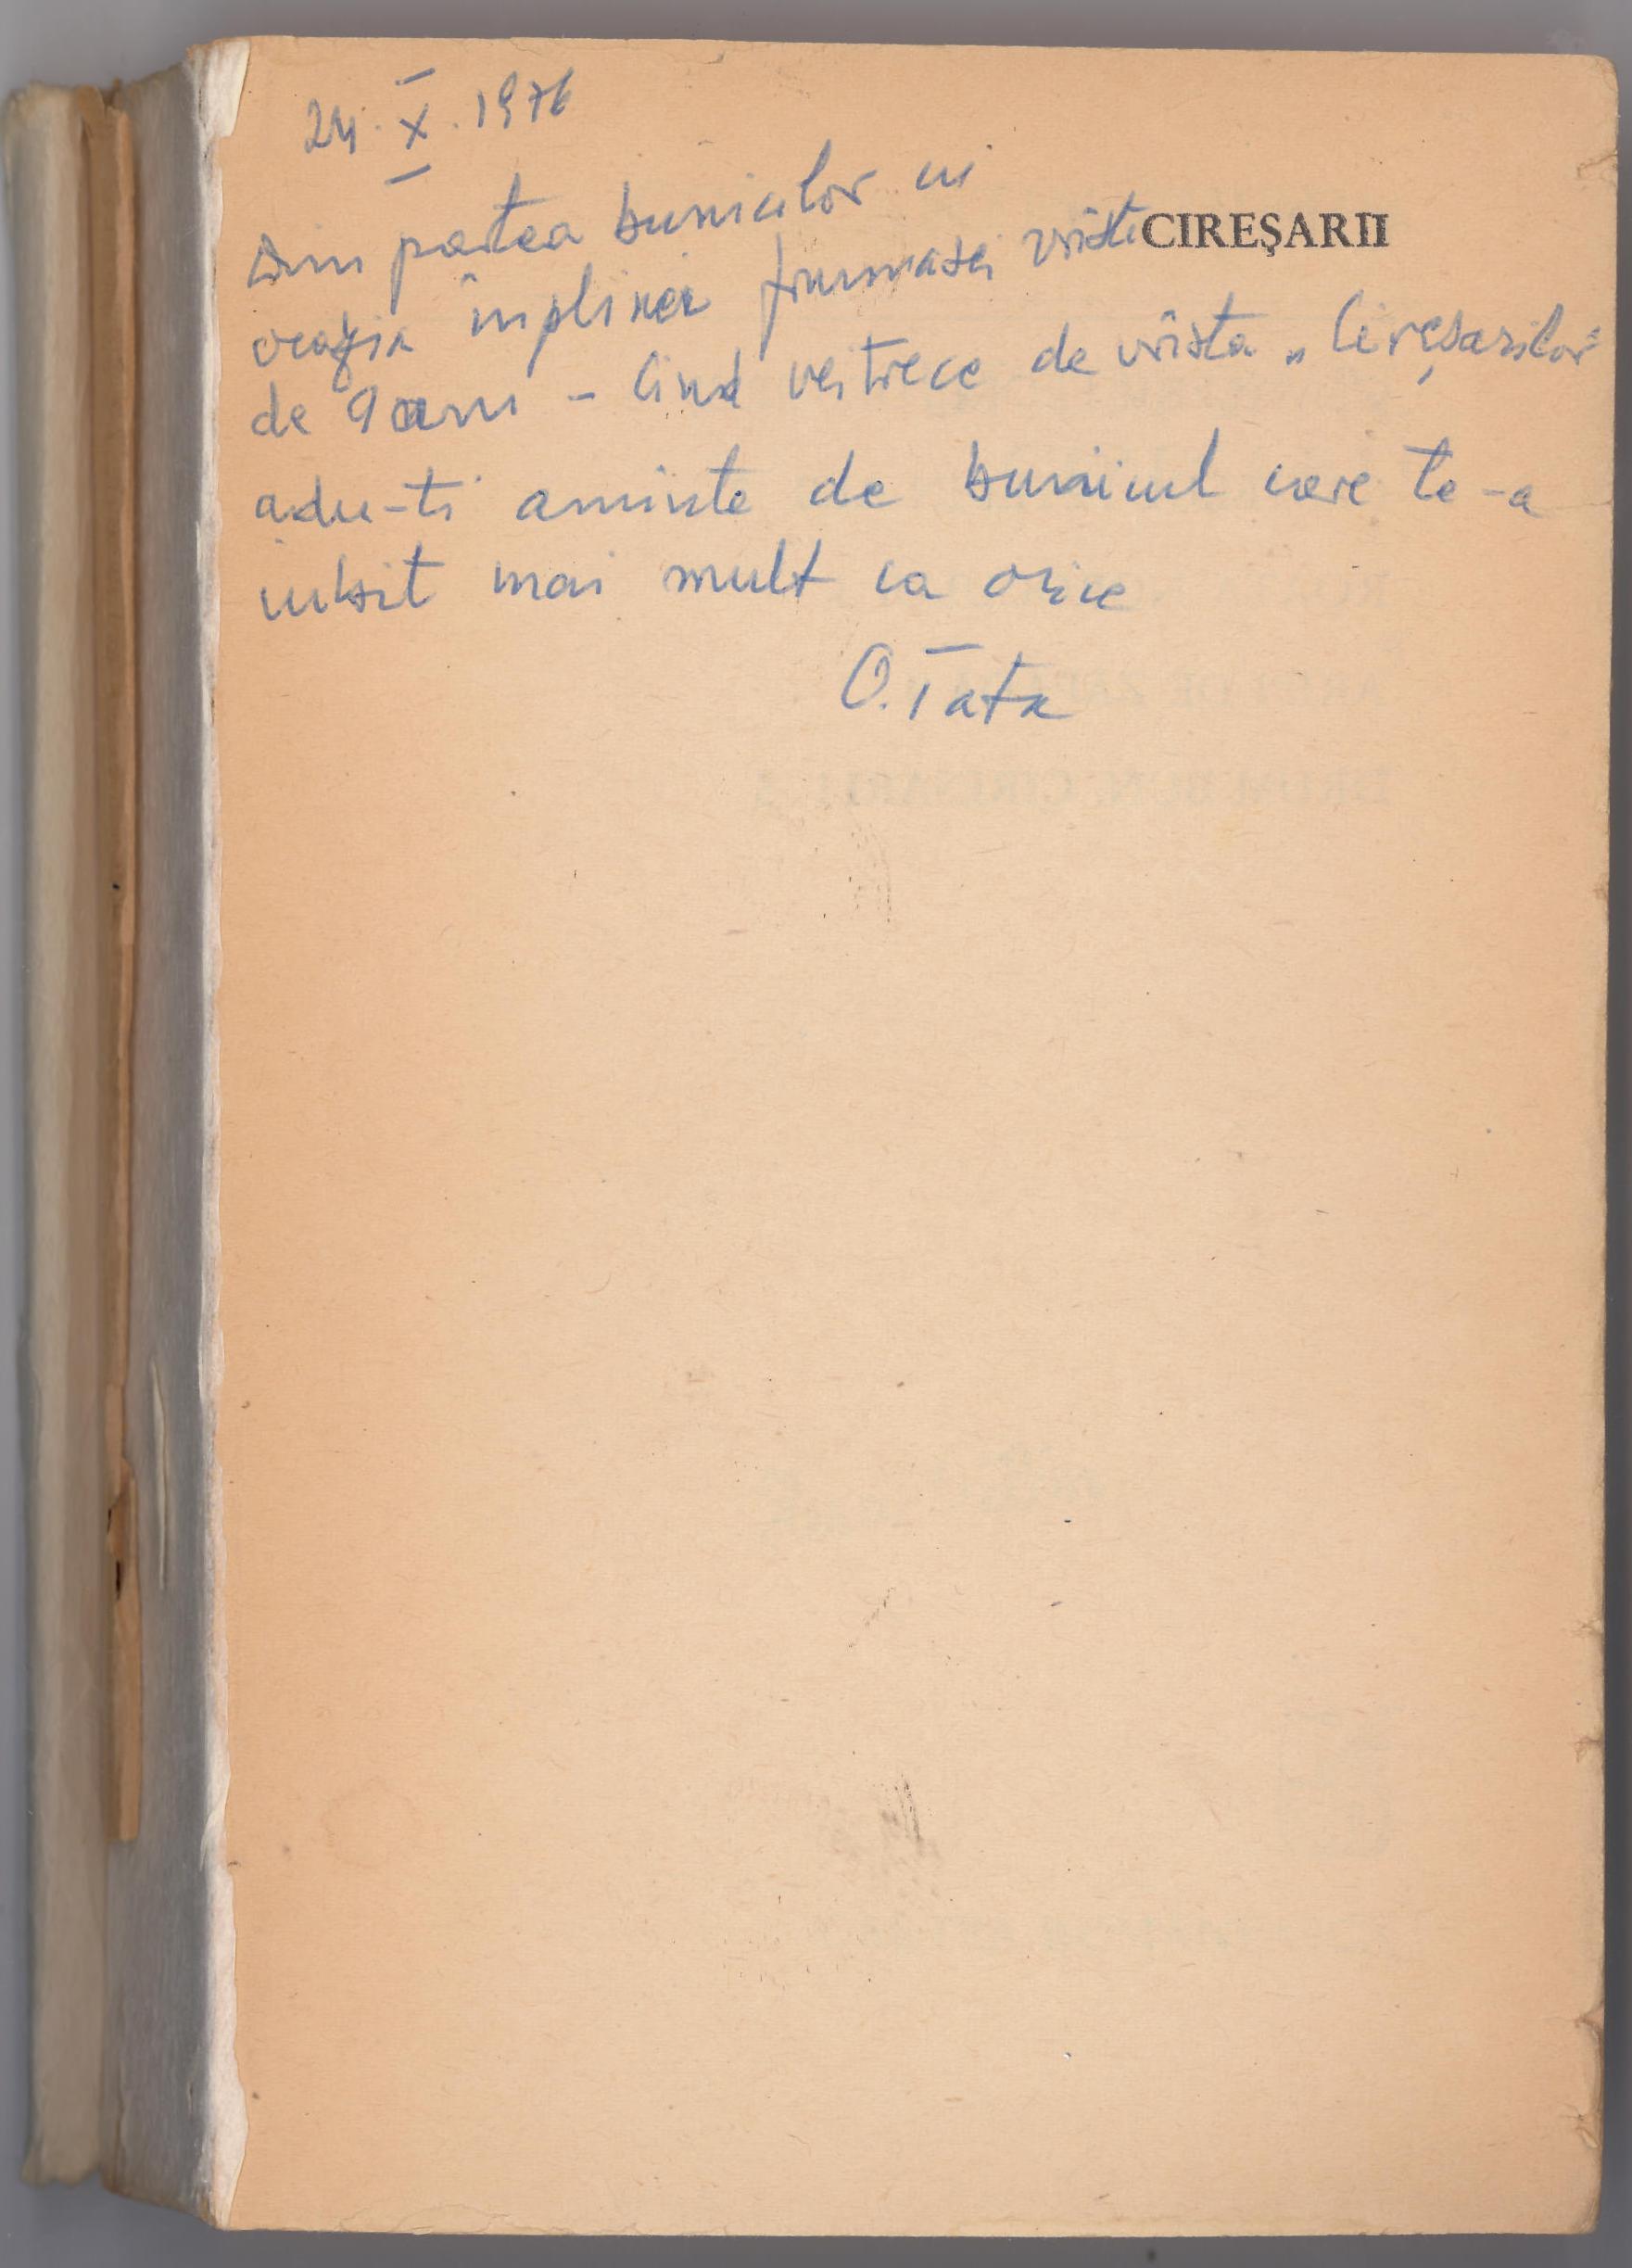 24. X. 1976
CIREȘARII
Din partea bunicilor cu
ocazia împlinei frumoasei vîrste
de 9 ani - Cînd vei trece de vîrsta „Cireșarilor"
adu-ti aminte de bunicul care te-a
iubit mai mult ca orice
O. Tata